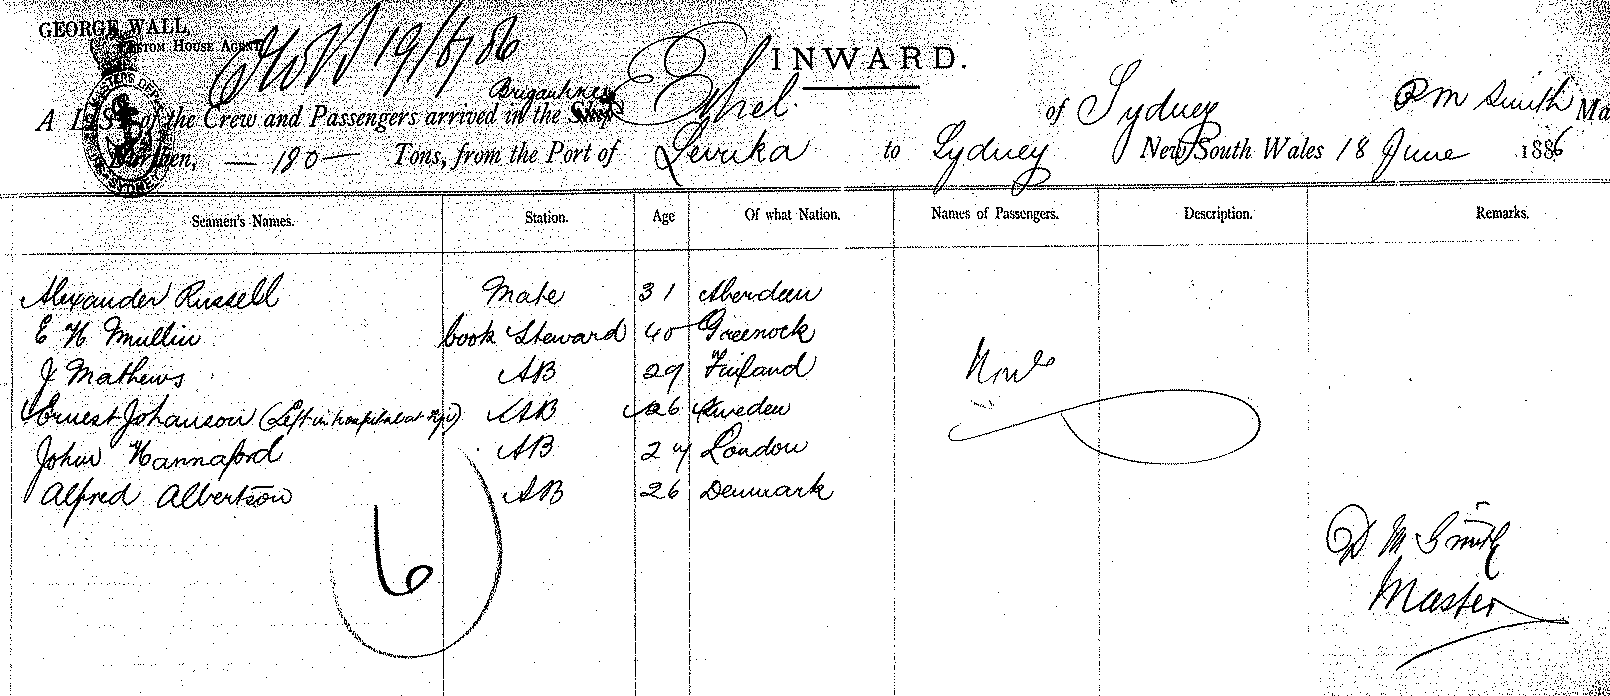 GEORGE WALL,
CUSTOM HOUSE AGENT
19/6/86
INWARD.
Brigantine
A LIST of the Crew and Passengers arrived in the Ship Ethel of Sydney D M Smith Ma
Burthen, — 180 — Tons, from the Port of Levuka to Sydney New South Wales 18 June 1886
Seamen's Names. Station. Age Of what Nation. Names of Passengers. Description. Remarks.
Alexander Russell Mate 31 Aberdeen
E H Mullin Cook Steward 40 Greenock
J Mathews AB 29 Finland
None
Ernest Johanson (Left in hospital at Fiji) AB 26 Sweden
John Hannaford AB 24 London
Alfred Albertson AB 26 Denmark
6
D M Smith
Master